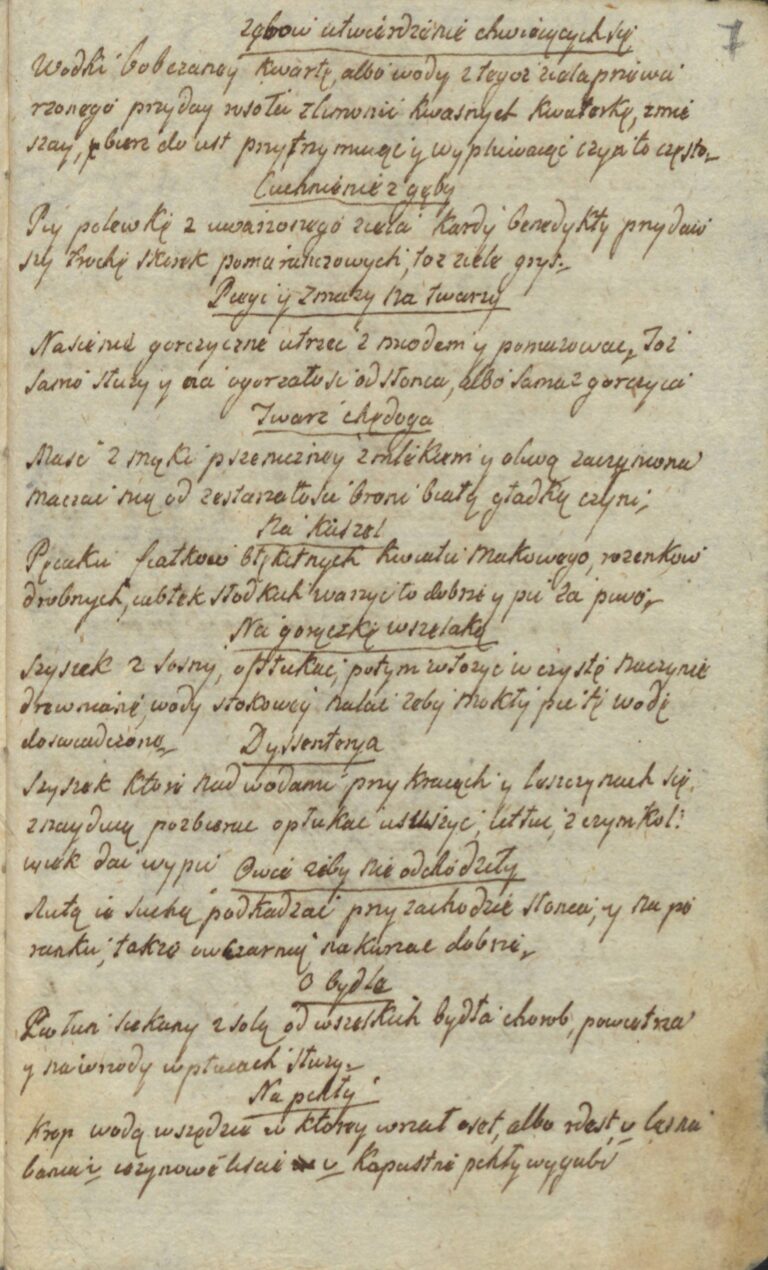 7
zębow utwierdzenie chwieiących się
Wodki bobczaney kwartę, albo wody z tegoż ziela przewa
rzonego przyday rosołu z limonii kwasnych kwaterkę, zmie
szay, bierz do ust przytrzymuiąc y wypluwaiąc czyń to często.
Cuchnienie z gęby
Piy polewkę z uwarzonego ziela kardy benedykty przydaw
szy trochę skorek pomarańczowych, toż ziele gryś.
Piegi y Zmazy na twarzy
Nasienie gorczyczne utrzeć z miodem y pomazować, Toż
samo służy y na ogorzałość od słonca, albo sama gorczyca
Twarz chędoga
Masć z mąki pszeniczney z mlekiem y oliwą zaczyniona
maczać nią od zestarzałości broni białą gładką czyni,
Na kaszel
Pęcaku fiałkow błękitnych kwiatu makowego, rozenkow
drobnych, iabłek słodkich warzyć to dobrze y pić za piwo,
Na gorączkę wszelaką
Szyszek z sosny, opłukać, potym włożyć w czyste naczynie
drzewniane, wody stokowey nalać żeby mokły pić tę wodę
doswiadczono
Dyssenterya
Szyszek ktore nad wodami przy kracach y leszczynach się
znayduią pozbierac opłukać ususzyć, utłuc, z czymkol:
wiek dać wypić
Owce żeby nie odchodziły
Rutą ie suchą podkadzać przy zachodzie słonca, y na po
ranku, także owczarnią nakurzać dobrze,
O bydle
Piołun siekany z solą od wszelkich bydła chorob, powietrza
y na wrzody w płucach służy.
Na pchły
Krop wodą wszędzie w ktorey wrzał oset, albo rdest v
v kapustne pchły wygubi